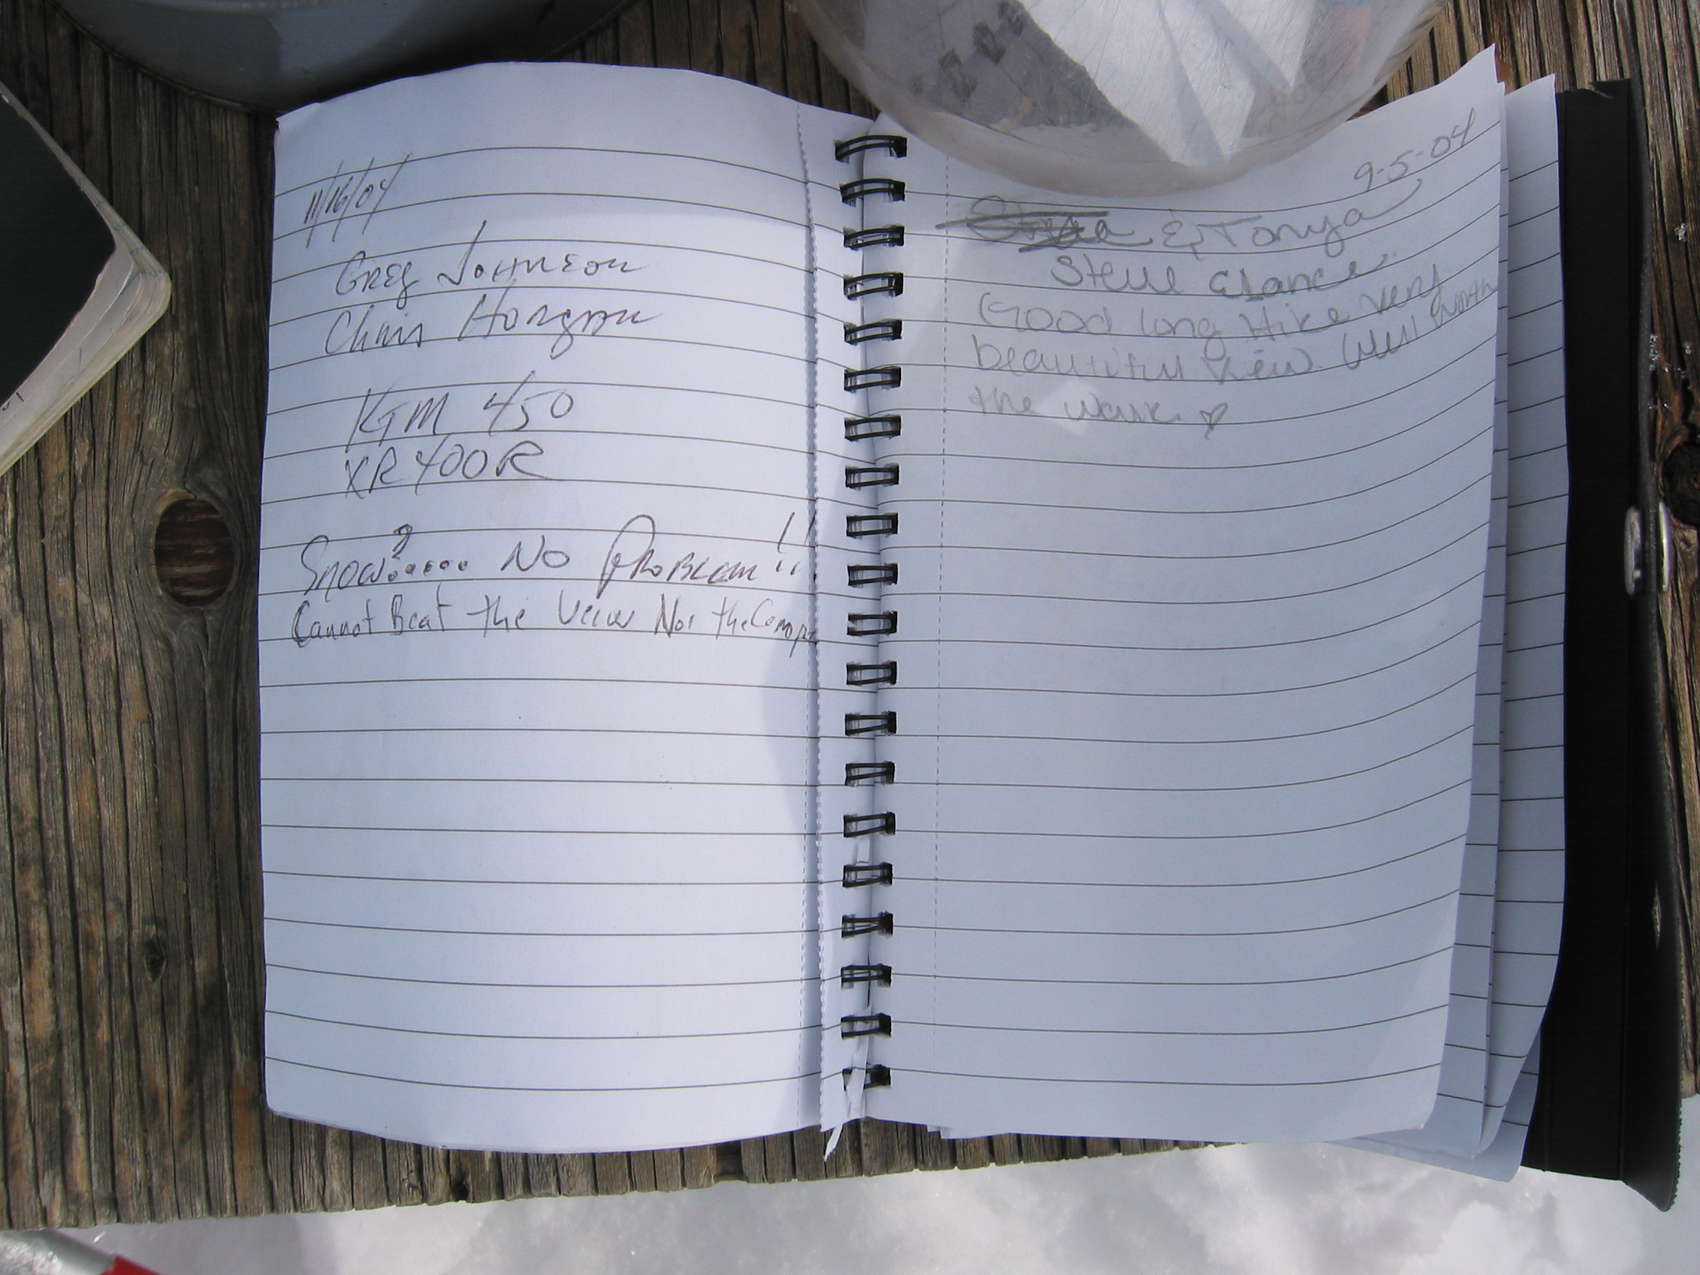 11/16/04
Greg Johnson
Chris
KTM 450
XR400R
Snow?..... No Problem!!
Cannot Beat the View Nor the
9-5-04
& Tonya
Steve
Good long Hike very
beautiful view. Well Worth
the walk ♡